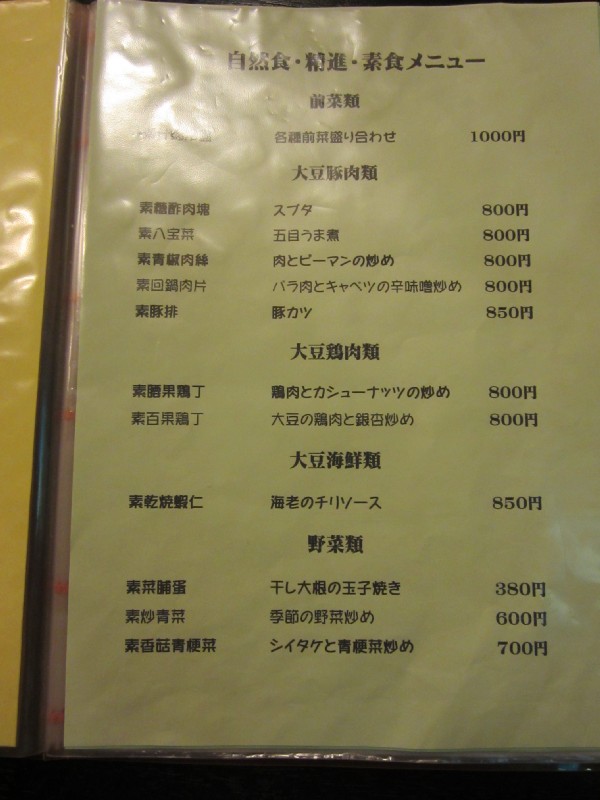 自然食・精進・素食メニュー
前菜類
各種前菜盛り合わせ 1000円
大豆豚肉類
素糖酢肉塊 スブタ 800円
素八宝菜 五目うま煮 800円
素青椒肉絲 肉とピーマンの炒め 800円
素回鍋肉片 バラ肉とキャベツの辛味噌炒め 800円
素豚排 豚カツ 850円
大豆鶏肉類
素腰果鶏丁 鶏肉とカシューナッツの炒め 800円
素百果鶏丁 大豆の鶏肉と銀杏炒め 800円
大豆海鮮類
素乾焼蝦仁 海老のチリソース 850円
野菜類
素菜脯蛋 干し大根の玉子焼き 380円
素炒青菜 季節の野菜炒め 600円
素香菇青梗菜 シイタケと青梗菜炒め 700円